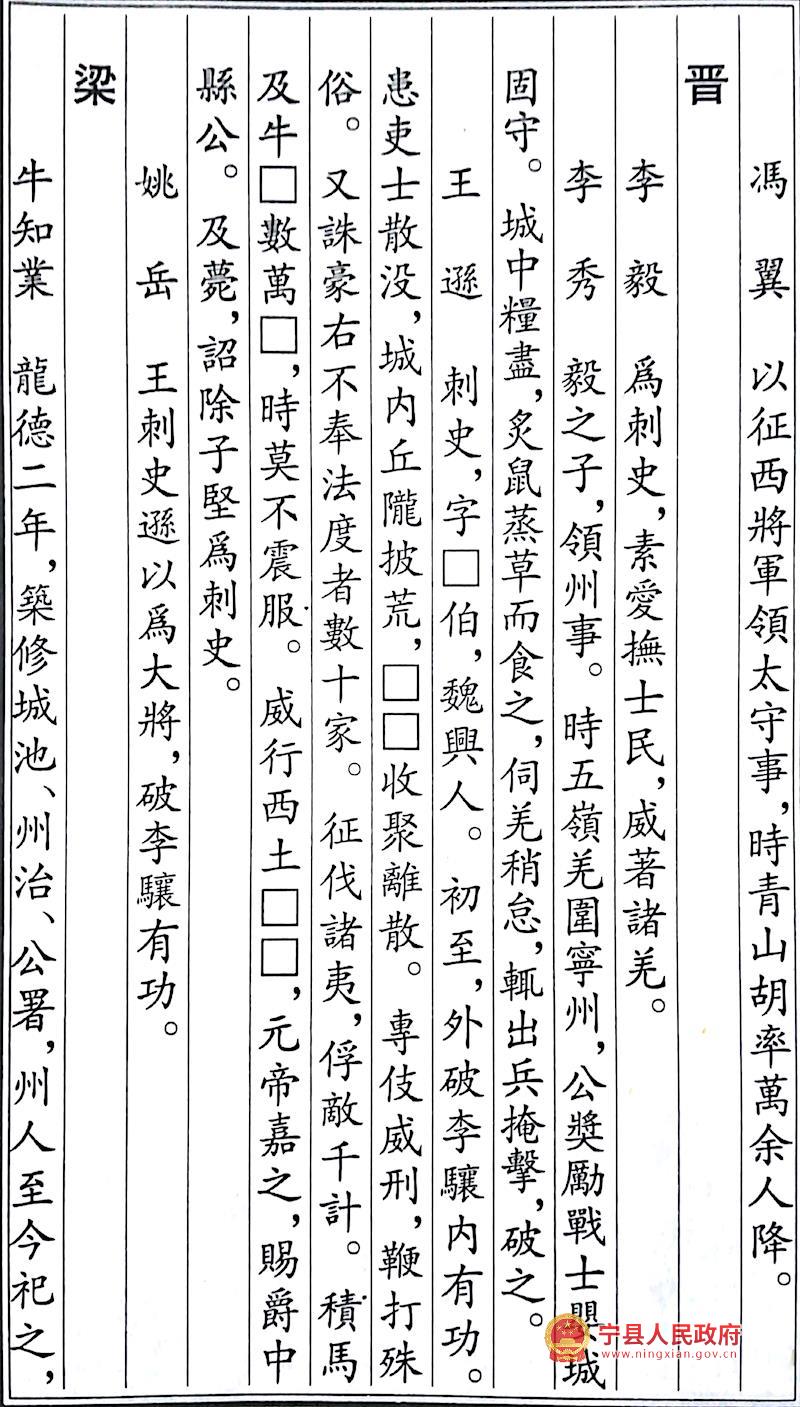 馮　翼　以征西將軍領太守事，時青山胡率萬余人降。
晋
李　毅　爲刺史，素愛撫士民，威著諸羌。
李　秀　毅之子，領州事。時五嶺羌圍寧州，公奬勵戰士嬰城
固守。城中糧盡，炙鼠蒸草而食之，伺羌稍怠，輒出兵掩擊，破之。
王　遜　刺史，字□伯，魏興人。初至，外破李驤内有功。
患吏士散没，城内丘隴披荒，□□收聚離散。專伎威刑，鞭打殊
俗。又誅豪右不奉法度者數十家。征伐諸夷，俘敵千計。積馬
及牛□數萬□，時莫不震服。威行西土□□，元帝嘉之，賜爵中
縣公。及薨，詔除子堅爲刺史。
姚　岳　王刺史遜以爲大將，破李驤有功。
梁
牛知業　龍德二年，築修城池、州治、公署，州人至今祀之，
宁县人民政府
www.ningxian.gov.cn